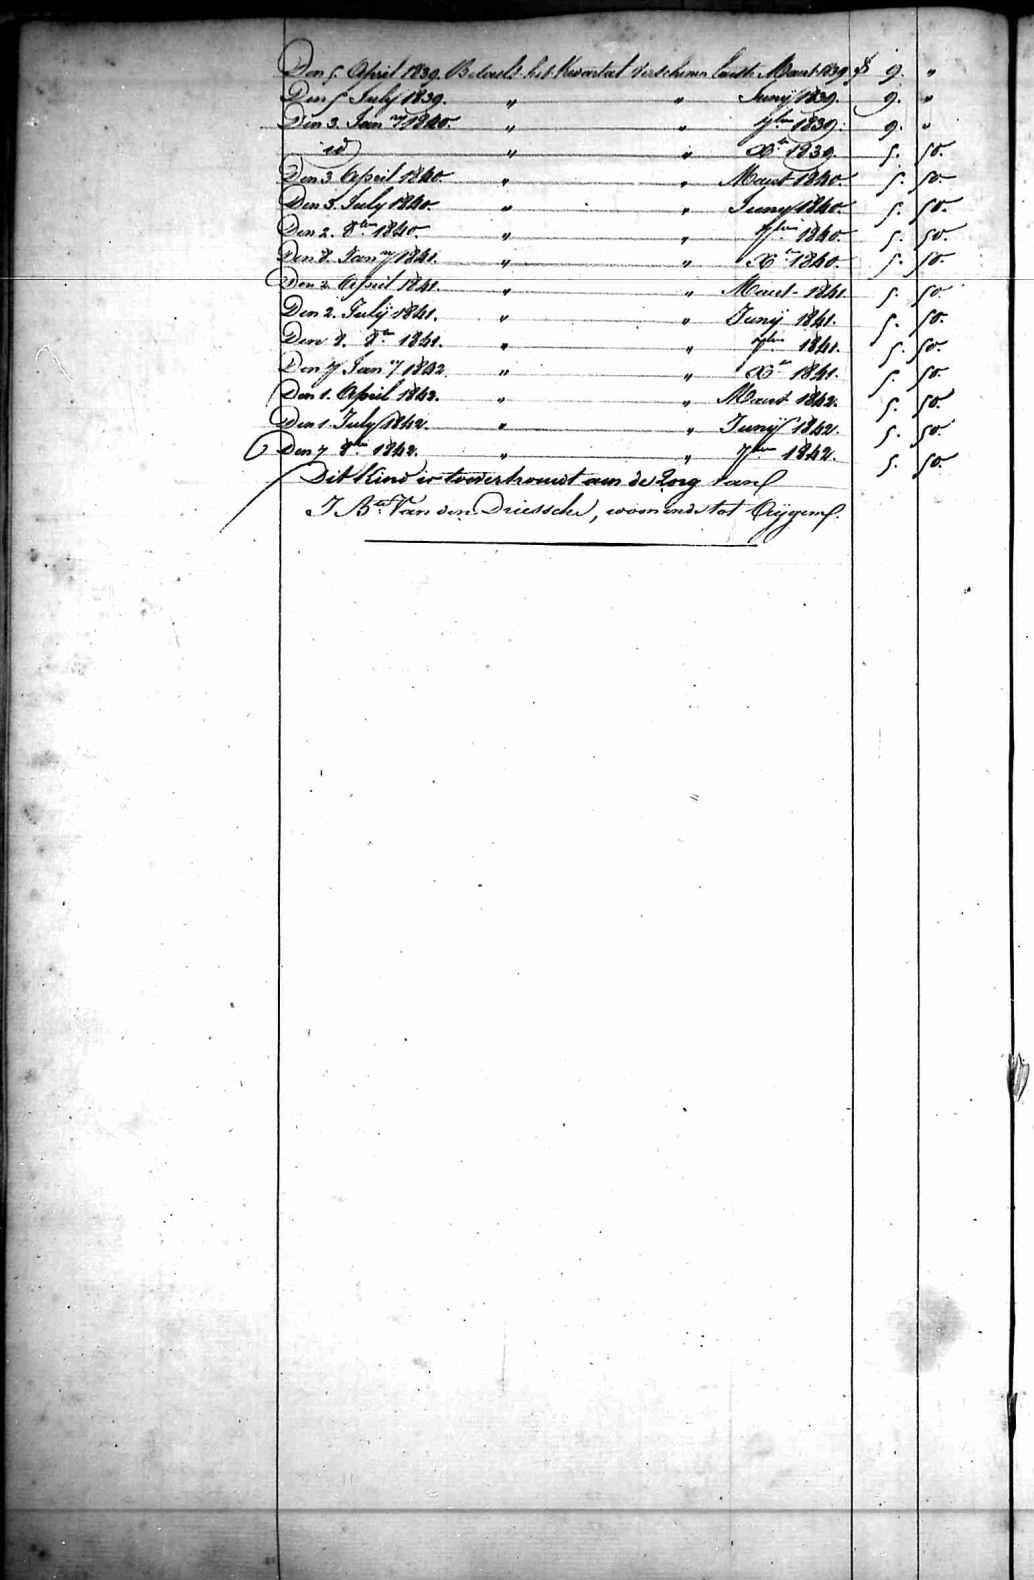 Den 5. April 1839. Betaelt het Kwartal verschenen laetst Maert 1839 9. "
Den 5 July 1839. " " Juny 1839. 9. "
Den 3. Jan.ry 1840. " " 7ber 1839. 9. "
id " " Xber 1839. 5. 50.
Den 3 April 1840. " " Maert 1840. 5. 50.
Den 3. July 1840. " " Juny 1840. 5. 50.
Den 2. 8ber 1840. " " 7ber 1840. 5. 50.
Den 8. Jan.ry 1841. " " Xber 1840. 5. 50.
Den 2 April 1841. " " Maert 1841. 5. 50.
Den 2. July 1841. " " Juny 1841. 5. 50.
Den 8. 8ber 1841. " " 7ber 1841. 5. 50.
Den 7 Jan.ry 1842. " " Xber 1841. 5. 50.
Den 1. April 1842. " " Maert 1842. 5. 50.
Den 1. July 1842. " " Juny 1842. 5. 50.
Den 7 8ber 1842. " " 7ber 1842. 5. 50.
Dit Kind is toevertrouwt aen de Zorg van
J Bte Van den Driessche, woonende tot